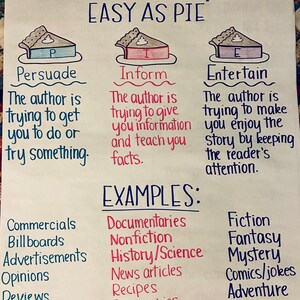 EASY AS PIE
P I E
Persuade Inform Entertain
The author is
trying to get
you to do or
try something.
The author is
trying to give
you information
and teach you
facts.
The author is
trying to make
you enjoy the
story by keeping
the reader's
attention.
EXAMPLES:
Commercials
Billboards
Advertisements
Opinions
Documentaries
Nonfiction
History/Science
News articles
Recipes
Fiction
Fantasy
Mystery
Comics/jokes
Adventure